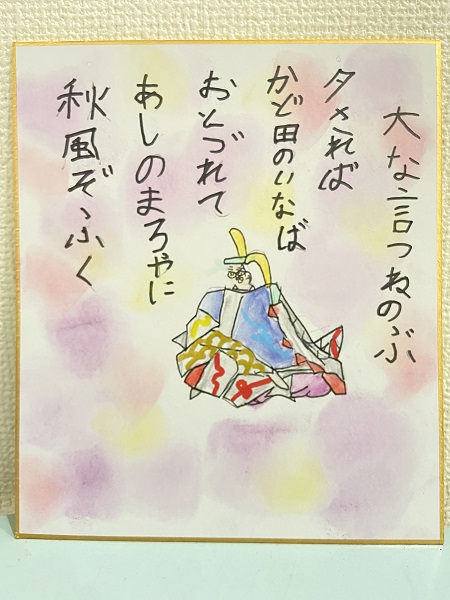 大な言つねのぶ
夕されば
かど田のいなば
おとづれて
あしのまろやに
秋風ぞふく